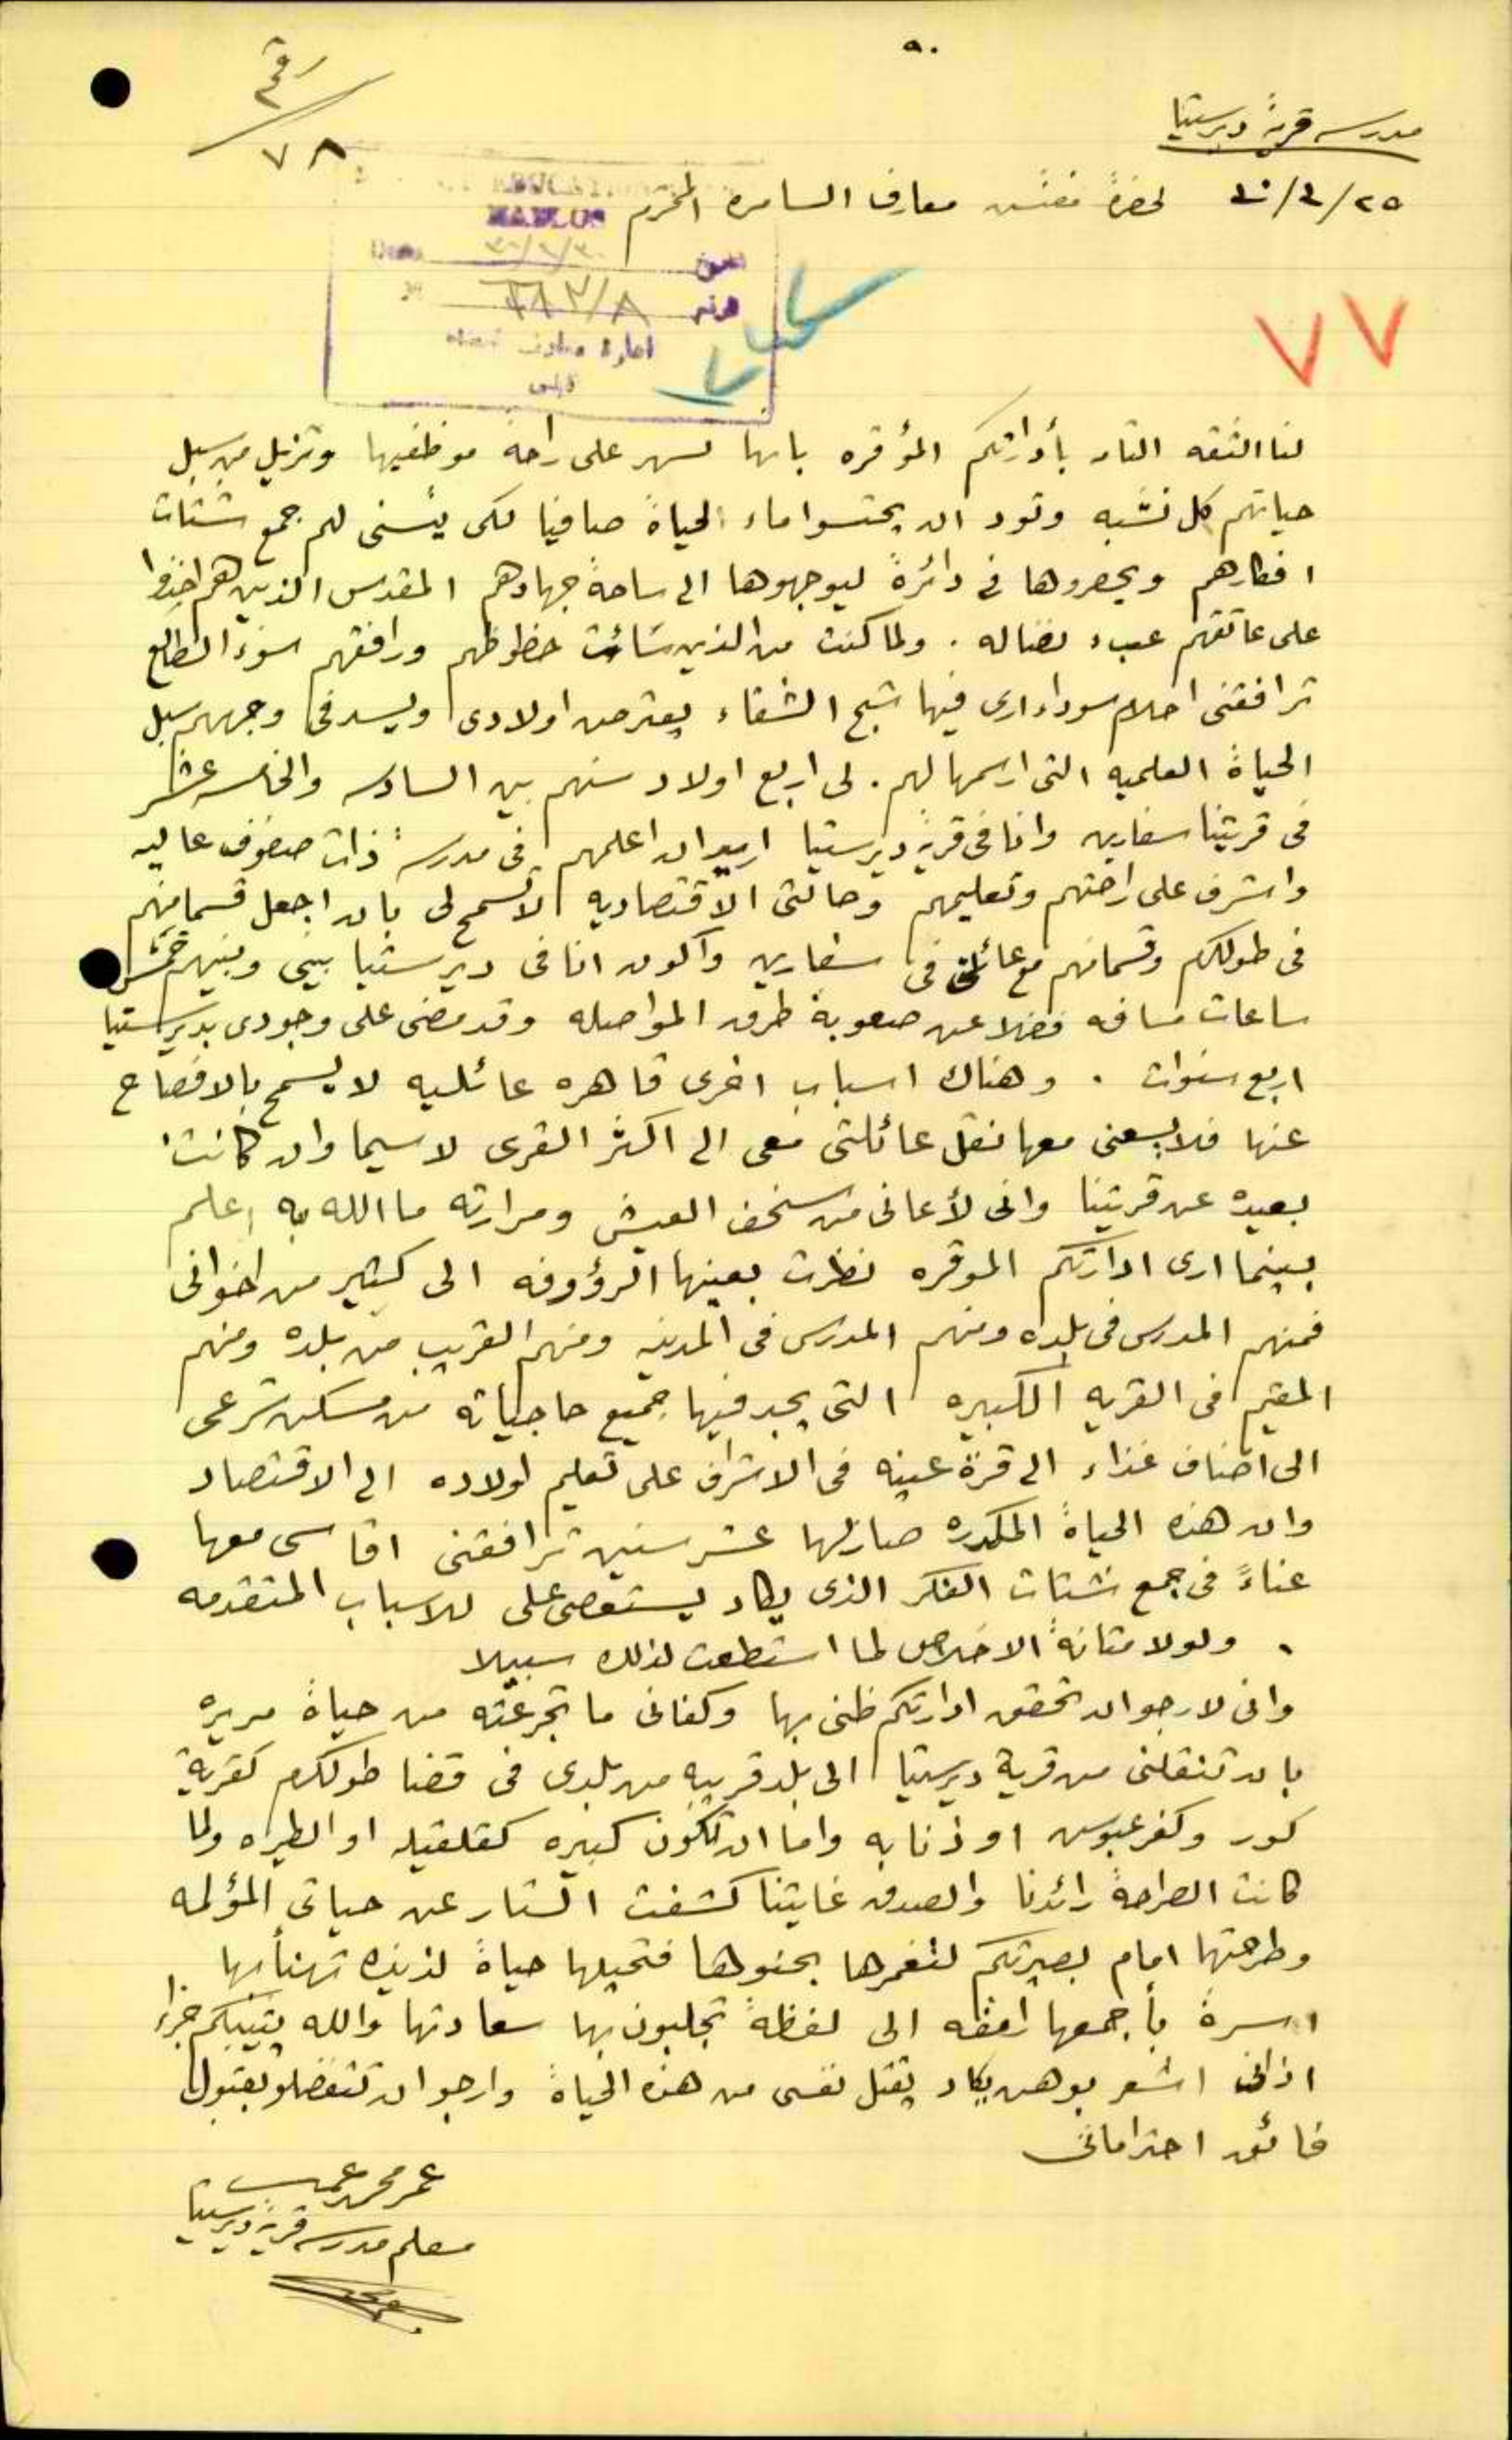 ٥٠
رقم
٧٨
مدرسة قرية ديرستيا
لحضرة مفتش معارف السامرة المحترم
NABLUS
٧٧
لنا الثقه التامه بأدارتكم المؤقره بانها تسهر على راحة موظفيها وتزيل من سبيل
حياتهم كل نشبه وتود ان يحتسوا ماء الحياة صافيا لكى يتسنى لهم جمع شتات
افكارهم ويحصروها في دائرة ليوجهوها الى ساحة جهادهم المقدس الذين هم اخذوا
على عاتقهم عبء نضاله . ولما كنت من الذين سائت حظوظهم ورافقهم سوء الطالع
ترافقنى احلام سوداء ارى فيها شبح الشقاء يعترض اولادى ويسد فى وجههم سبل
الحياة العلميه التى ارسمها لهم . لى اربع اولاد سنهم بين السادسه والخامسه عشر
فى قريتنا سفارين وانا فى قرية ديرستيا اريد ان اعلمهم فى مدرسة ذات صفوف عاليه
واشرف على راحتهم وتعليمهم وحالتى الاقتصاديه لا تسمح لى بان اجعل قسما منهم
فى طولكرم وقسما منهم مع عائلتى فى سفارين واكون انا فى ديرستيا بينى وبينهم خمس
ساعات مسافه فضلا عن صعوبة طرق المواصله وقد مضى على وجودى بديرستيا
اربع سنوات . وهناك اسباب اخرى قاهره عائليه لا يسمح بالافصاح
عنها فلا يسعنى معها نقل عائلتى معى الى اكثر القرى لا سيما وان كانت
بعيده عن قريتنا وانى لأعانى من سخف العيش ومرارته ما الله به اعلم
بينما ارى ادارتكم الموقره نظرت بعينها الرؤوفه الى كثير من اخوانى
فمنهم المدرس فى بلده ومنهم المدرس فى المدينه ومنهم القريب من بلده ومنهم
المقيم فى القريه الكبيره التى يجد فيها جميع حاجياته من مسكن شرعى
الى اصناف غذاء الى قرة عينه فى الاشراف على تعليم اولاده الى الاقتصاد
وان هذه الحياة المكدره صار لها عشر سنين ترافقنى اقاسى معها
عناءً فى جمع شتات الفكر الذى يكاد يستعصى على للاسباب المتقدمه
. ولولا متانة الاخلاص لما استطعت لذلك سبيلا
وانى لارجو ان تحقق ادارتكم ظنى بها وكفانى ما تجرعته من حياة مريره
بان تنقلنى من قرية ديرستيا الى بلد قريبه من بلدى فى قضا طولكرم كقرية
كور وكفر عبوش او ذنابه واما ان تكون كبيره كقلقيله او الطيره ولما
كانت الصراحة رائدنا والصدق غايتنا كشفت الستار عن حياتى المؤلمه
وطرحتها امام بصيرتكم لتغمرها بحنوها فتحيلها حياة لذيذه تهنأ بها
اسرة بأجمعها الى لفظة تجلبون بها سعادتها والله يثيبكم جزاء
اذانى اشعر بوهن يكاد يقتل نفسى من هذه الحياة وارجو ان تتفضلو بقبول
فائق احتراماتى
عمر محمد
معلم مدرسة قرية ديرستيا